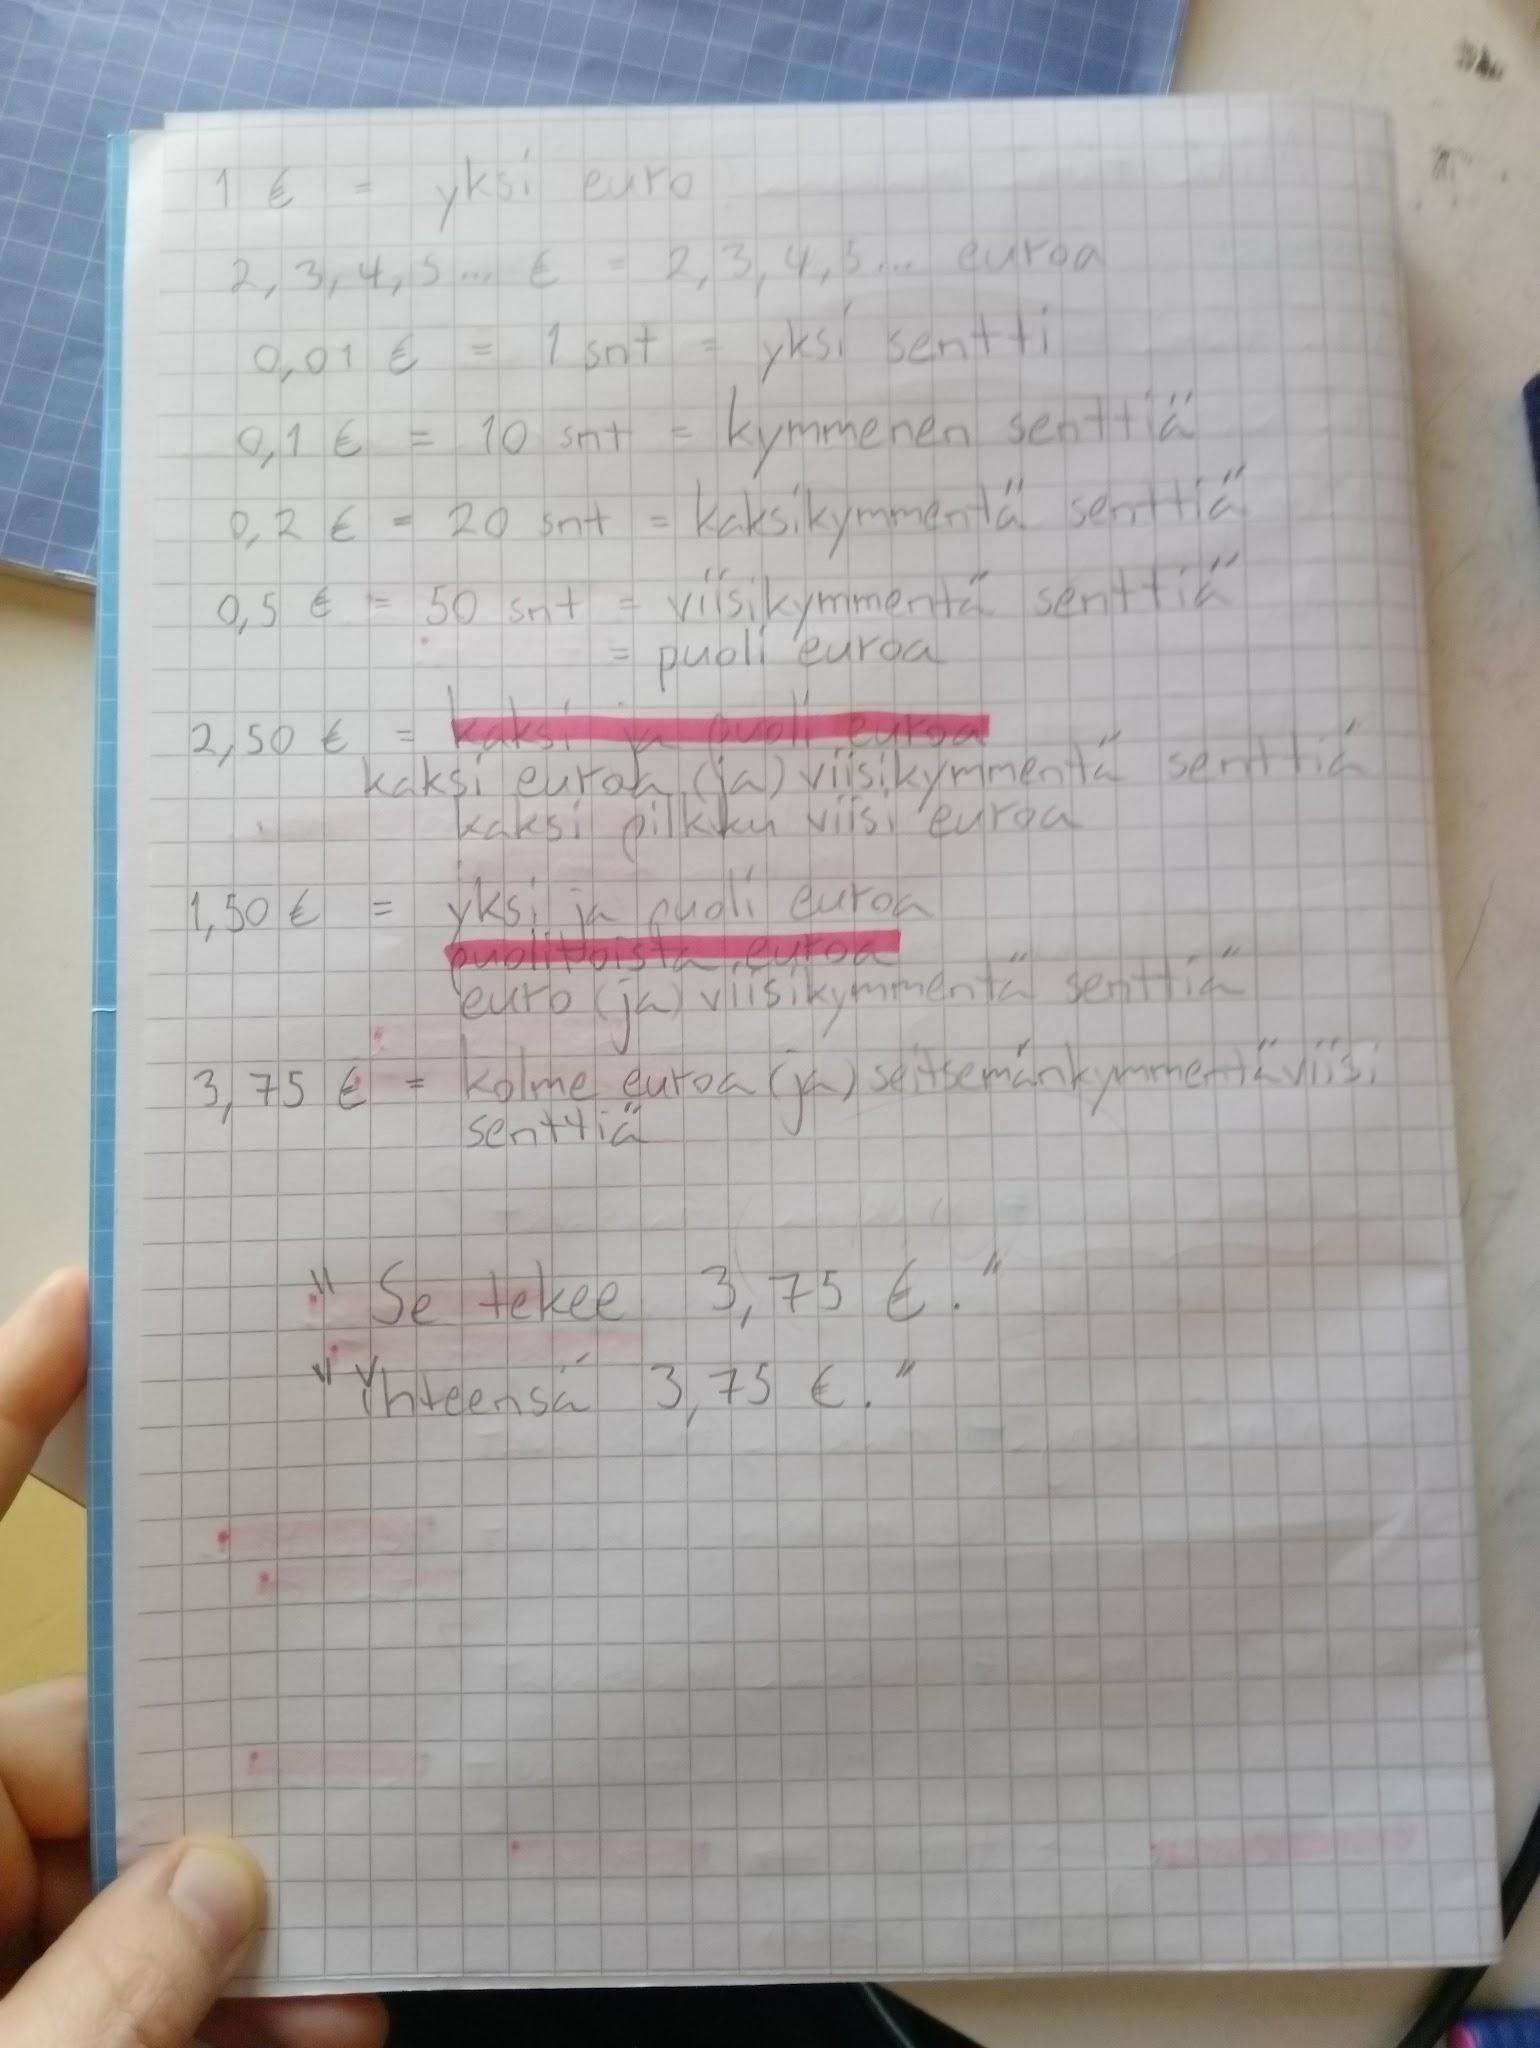 1 € = yksi euro
2, 3, 4, 5... € = 2, 3, 4, 5... euroa
0,01 € = 1 snt = yksi sentti
0,1 € = 10 snt = kymmenen senttiä
0,2 € = 20 snt = kaksikymmentä senttiä
0,5 € = 50 snt = viisikymmentä senttiä
= puoli euroa
2,50 € = kaksi ja puoli euroa
kaksi euroa (ja) viisikymmentä senttiä
kaksi pilkku viisi euroa
1,50 € = yksi ja puoli euroa
puolitoista euroa
euro (ja) viisikymmentä senttiä
3,75 € = kolme euroa (ja) seitsemänkymmentäviisi
senttiä
"Se tekee 3,75 €."
"Yhteensä 3,75 €."